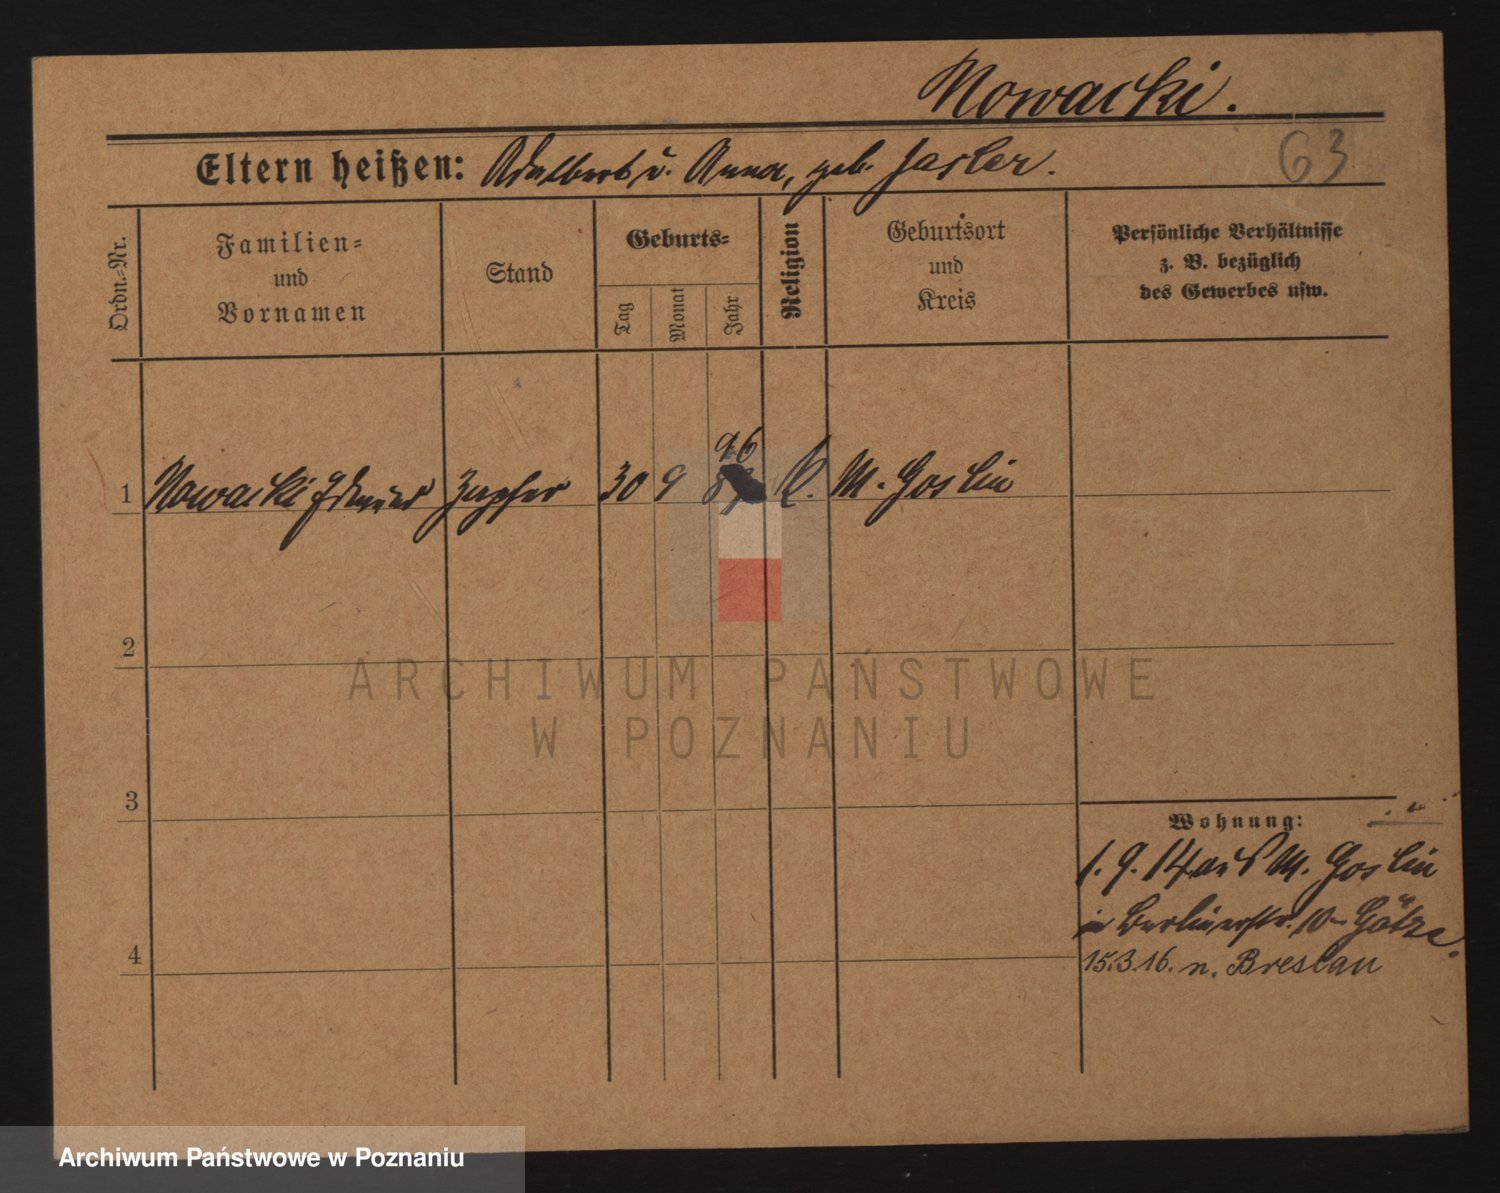 Nowacki.
63
Eltern heißen: Adalbert u. Anna, geb. Jasler.
Ordn.-Nr.
Familien-
und
Vornamen
Stand
Geburts-
Tag
Monat
Jahr
Religion
Geburtsort
und
Kreis
Persönliche Verhältnisse
z. B. bezüglich
des Gewerbes usw.
96
1 Nowacki Zapfer 30 9 K. M. Goslin
2
3
4
Wohnung:
1. 9. 14 aus M. Goslin
in Berlinerstr. 10 Götze.
15.3.16. n. Breslau
ARCHIWUM PAŃSTWOWE
W POZNANIU
Archiwum Państwowe w Poznaniu